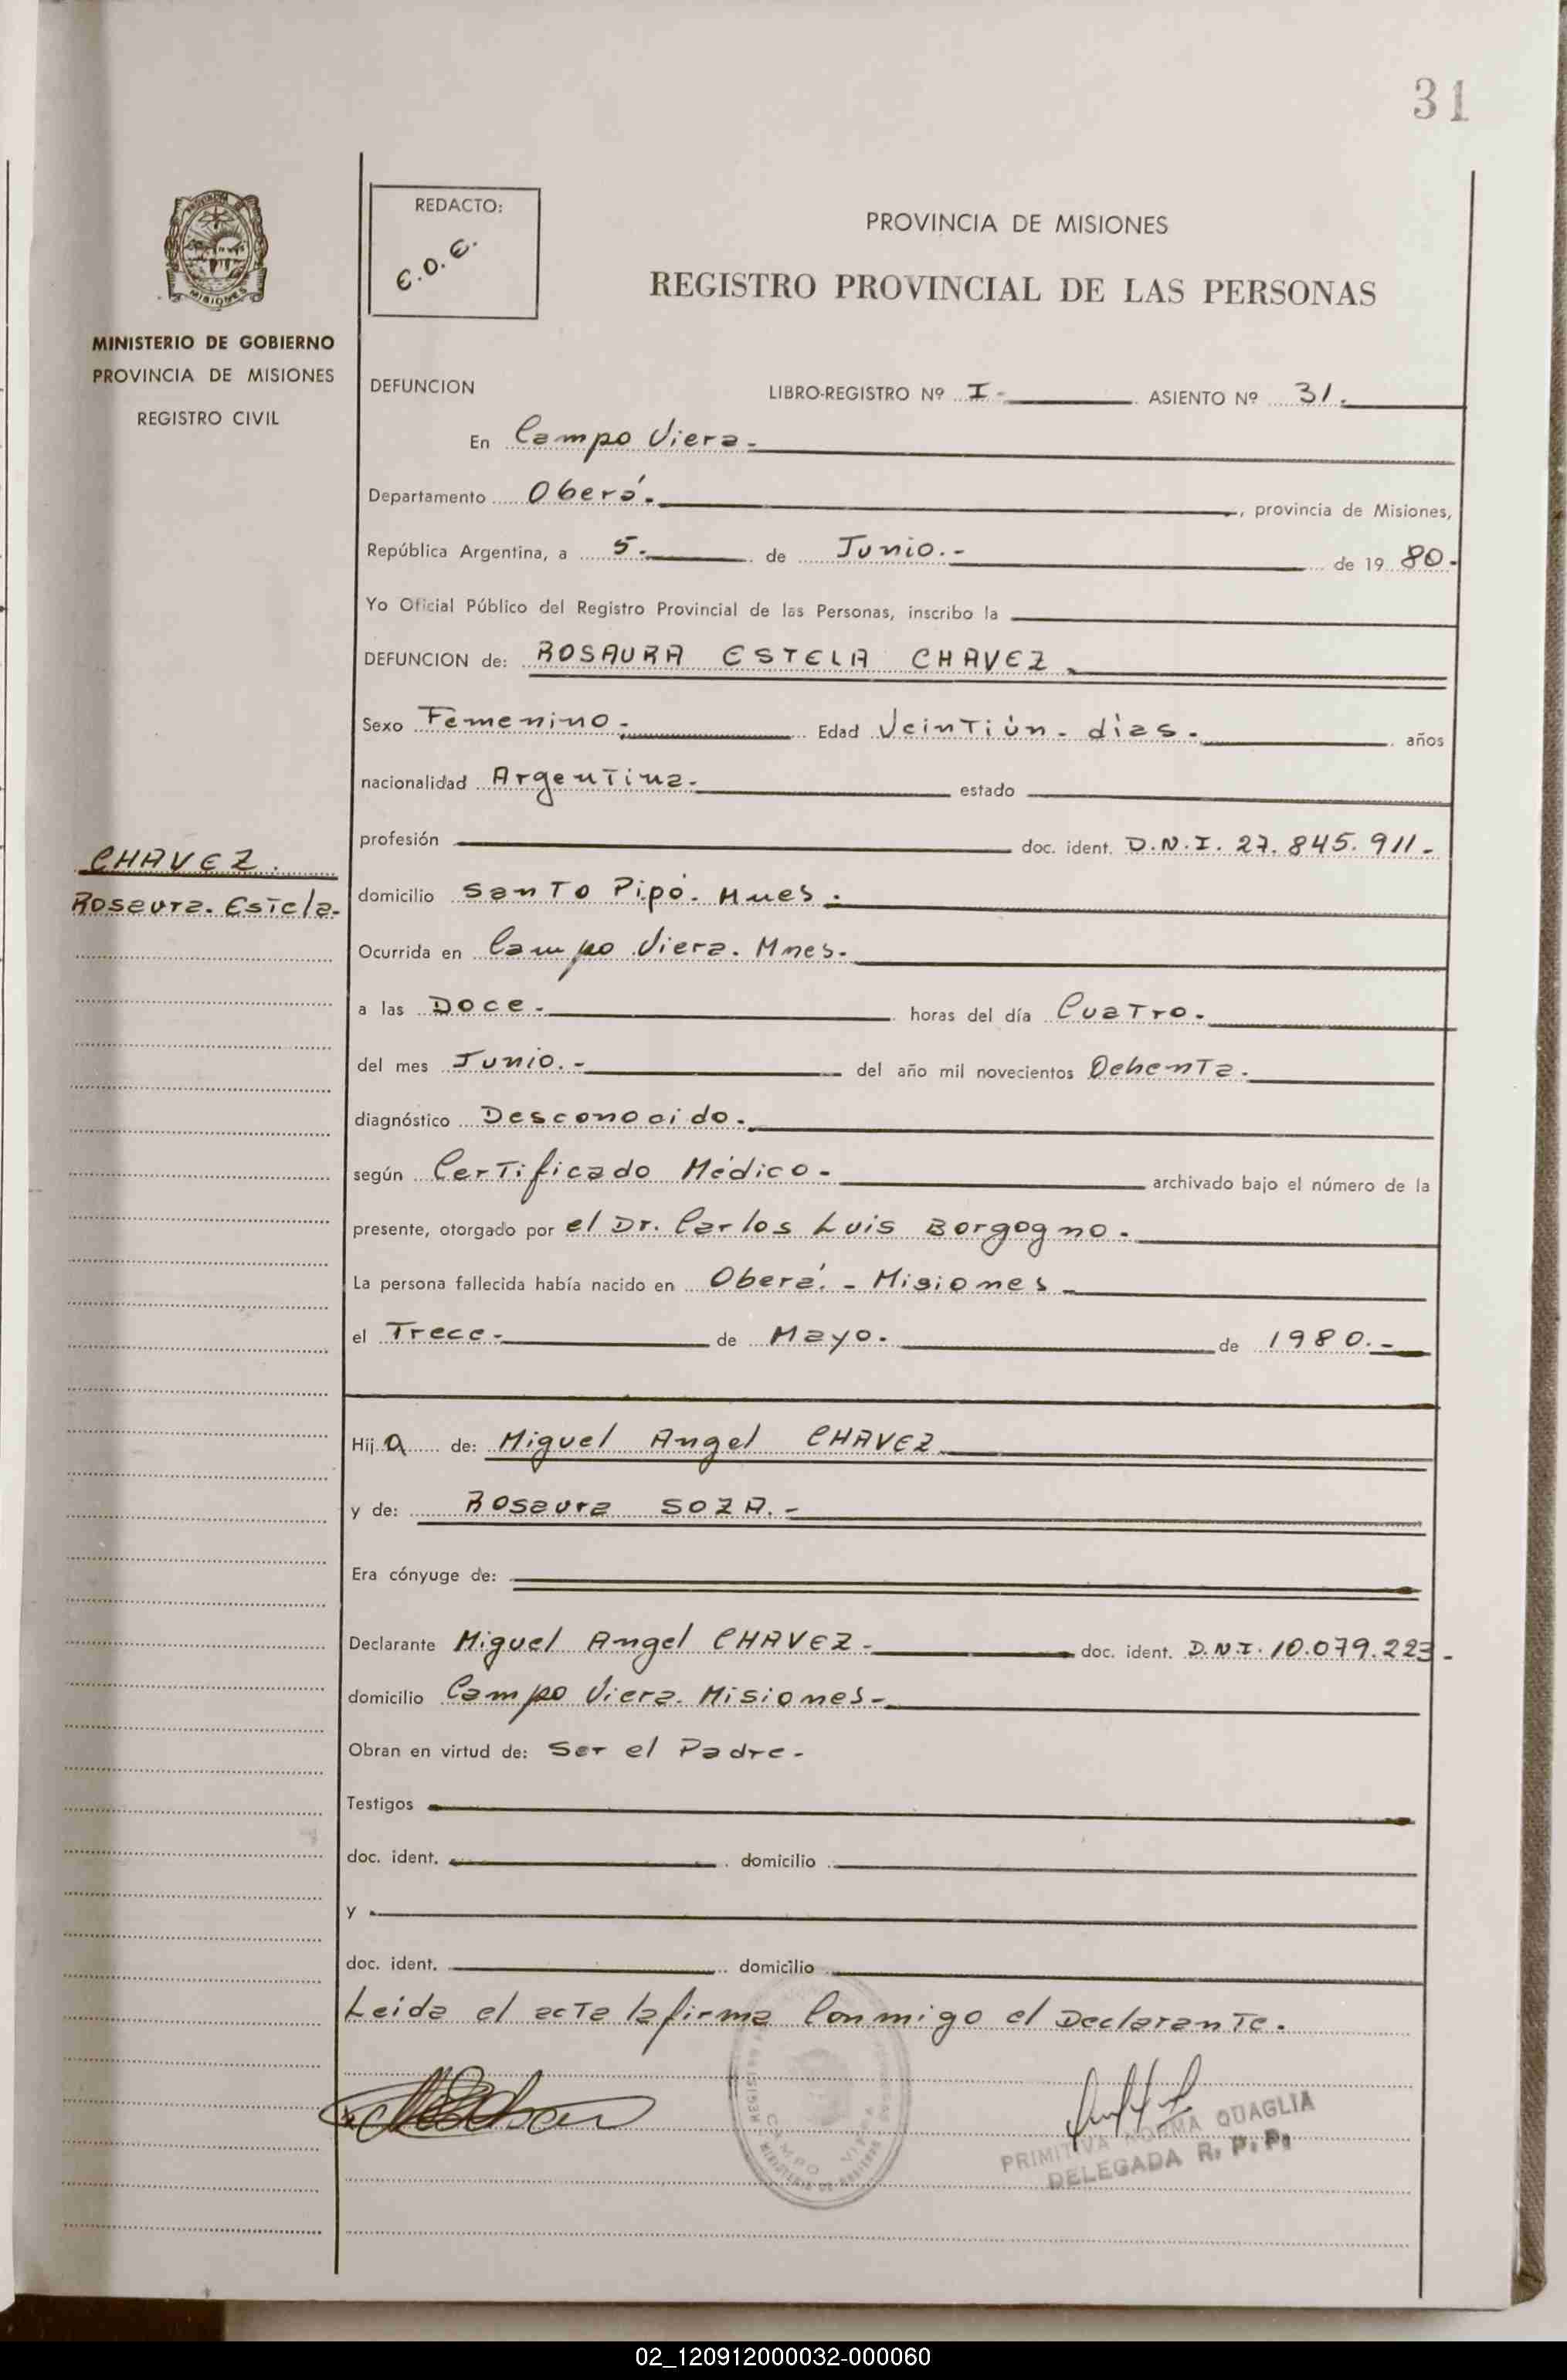 31
REDACTO:
E.O.E.
PROVINCIA DE MISIONES
REGISTRO PROVINCIAL DE LAS PERSONAS
MINISTERIO DE GOBIERNO
PROVINCIA DE MISIONES
REGISTRO CIVIL
DEFUNCION LIBRO-REGISTRO Nº I- ASIENTO Nº 31.
En Campo Viera.
Departamento Oberá. , provincia de Misiones,
República Argentina, a 5. de Junio.- de 19 80.
Yo Oficial Público del Registro Provincial de las Personas, inscribo la
DEFUNCION de: ROSAURA ESTELA CHAVEZ
Sexo Femenino. Edad Veintiún. días. años
nacionalidad Argentina. estado
profesión doc. ident. D.N.I. 27.845.911-
CHAVEZ.
Rosaura. Estela.
domicilio Santo Pipó. Mnes.
Ocurrida en Campo Viera. Mnes.
a las Doce. horas del día Cuatro.
del mes Junio.- del año mil novecientos Ochenta.
diagnóstico Desconocido.
según Certificado Médico- archivado bajo el número de la
presente, otorgado por el Dr. Carlos Luis Borgogno.
La persona fallecida había nacido en Oberá. - Misiones
el Trece. de Mayo. de 1980.-
Hij a de: Miguel Angel CHAVEZ
y de: Rosaura SOZA.-
Era cónyuge de:
Declarante Miguel Angel CHAVEZ- doc. ident. D.N.I. 10.079.223-
domicilio Campo Viera. Misiones-
Obran en virtud de: Ser el Padre-
Testigos
doc. ident. domicilio
y
doc. ident. domicilio
Leida el acta la firma Conmigo el Declarante.
CAMPO VIERA
PRIMITIVA NORMA QUAGLIA
DELEGADA R. P. P.
02_120912000032-000060